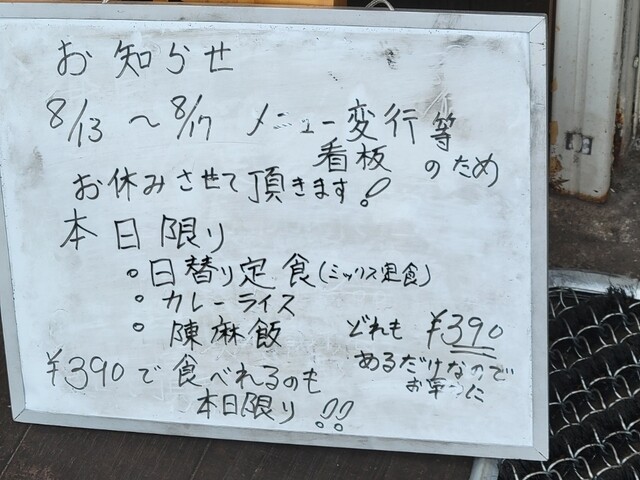 お知らせ
8/13 ～ 8/17 メニュー変行等
看板 のため
お休みさせて頂きます!
本日限り
○日替り定食(ミックス定食)
○カレーライス
○陳麻飯
どれも ¥390
あるだけなので
お早めに
¥390で食べれるのも
本日限り!!